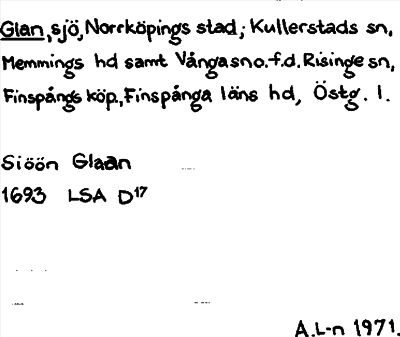 Glan, sjö, Norrköpings stad; Kullerstads sn,
Memmings hd samt Vånga sn o. f.d. Risinge sn,
Finspångs köp., Finspånga läns hd, Östg. l.
Siöön Glaan
1693 LSA D17
A.L-n 1971.